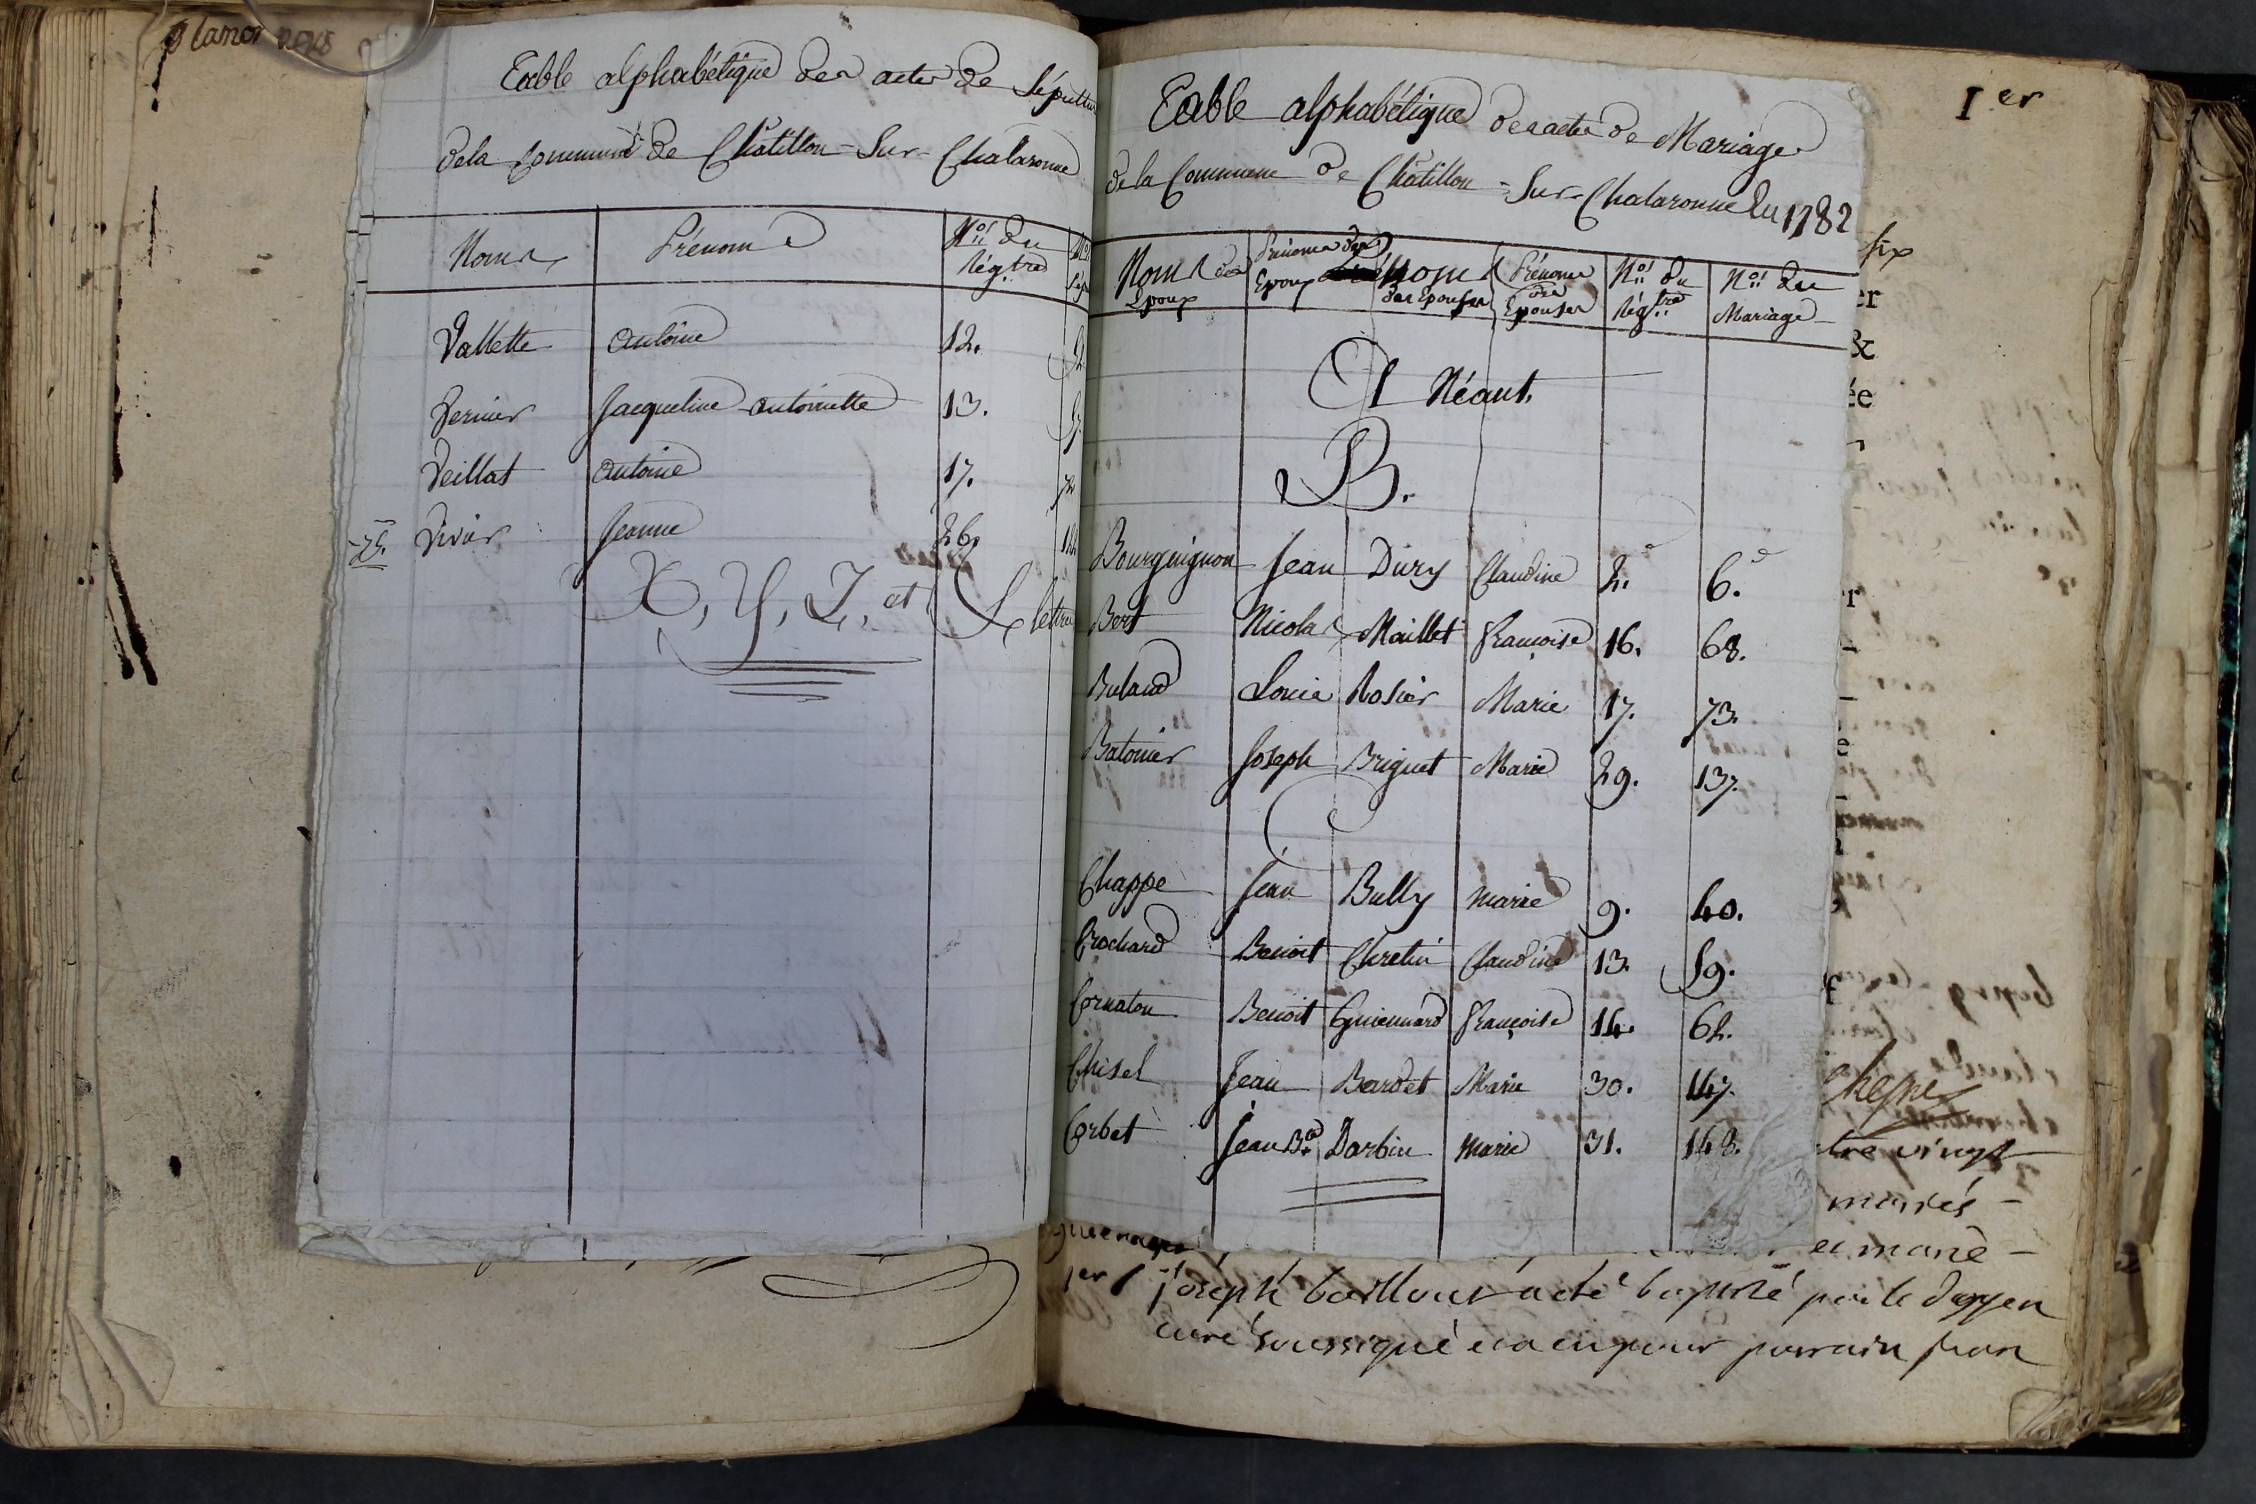 Table alphabétique des actes de Sépulture
de la Commune de Châtillon-Sur-Chalaronne
Noms Prénoms Nos. du Régtre.
Vallette Antoine 12.
Vernier Jacqueline antoinette 13.
Veillat antoine 17. 72
25. Vivier Jeanne 26.
X, Y, Z, et & lettre
Table alphabétique des actes de Mariage
de la Commune de Châtillon-Sur-Chalaronne du 1782
Noms des Epoux Prénoms des Epoux Noms des Epouses Prénoms des Epouses Nos. du Régtre. Nos. du Mariage
A Néant.
B.
Bourguignon Jean Dury Claudine 2. 6.
Bert Nicolas Maillet françoise 16. 68.
Buland Louis Rosier Marie 17. 73.
Batonier Joseph Briguet Marie 29. 137.
C
Chappe Jean Bully marie 9. 40.
Crochard Benoit Chretin Claudine 13. 59.
Cornaton Benoit Guiennard françoise 14. 62.
Chisel Jean Bardet Marie 30. 147.
Corbet Jean Bte. Darbin marie 31. 148.
1er
six
er
&
ée
tre vingt
mariés
et marie
1er joseph
curé soussigné parrain